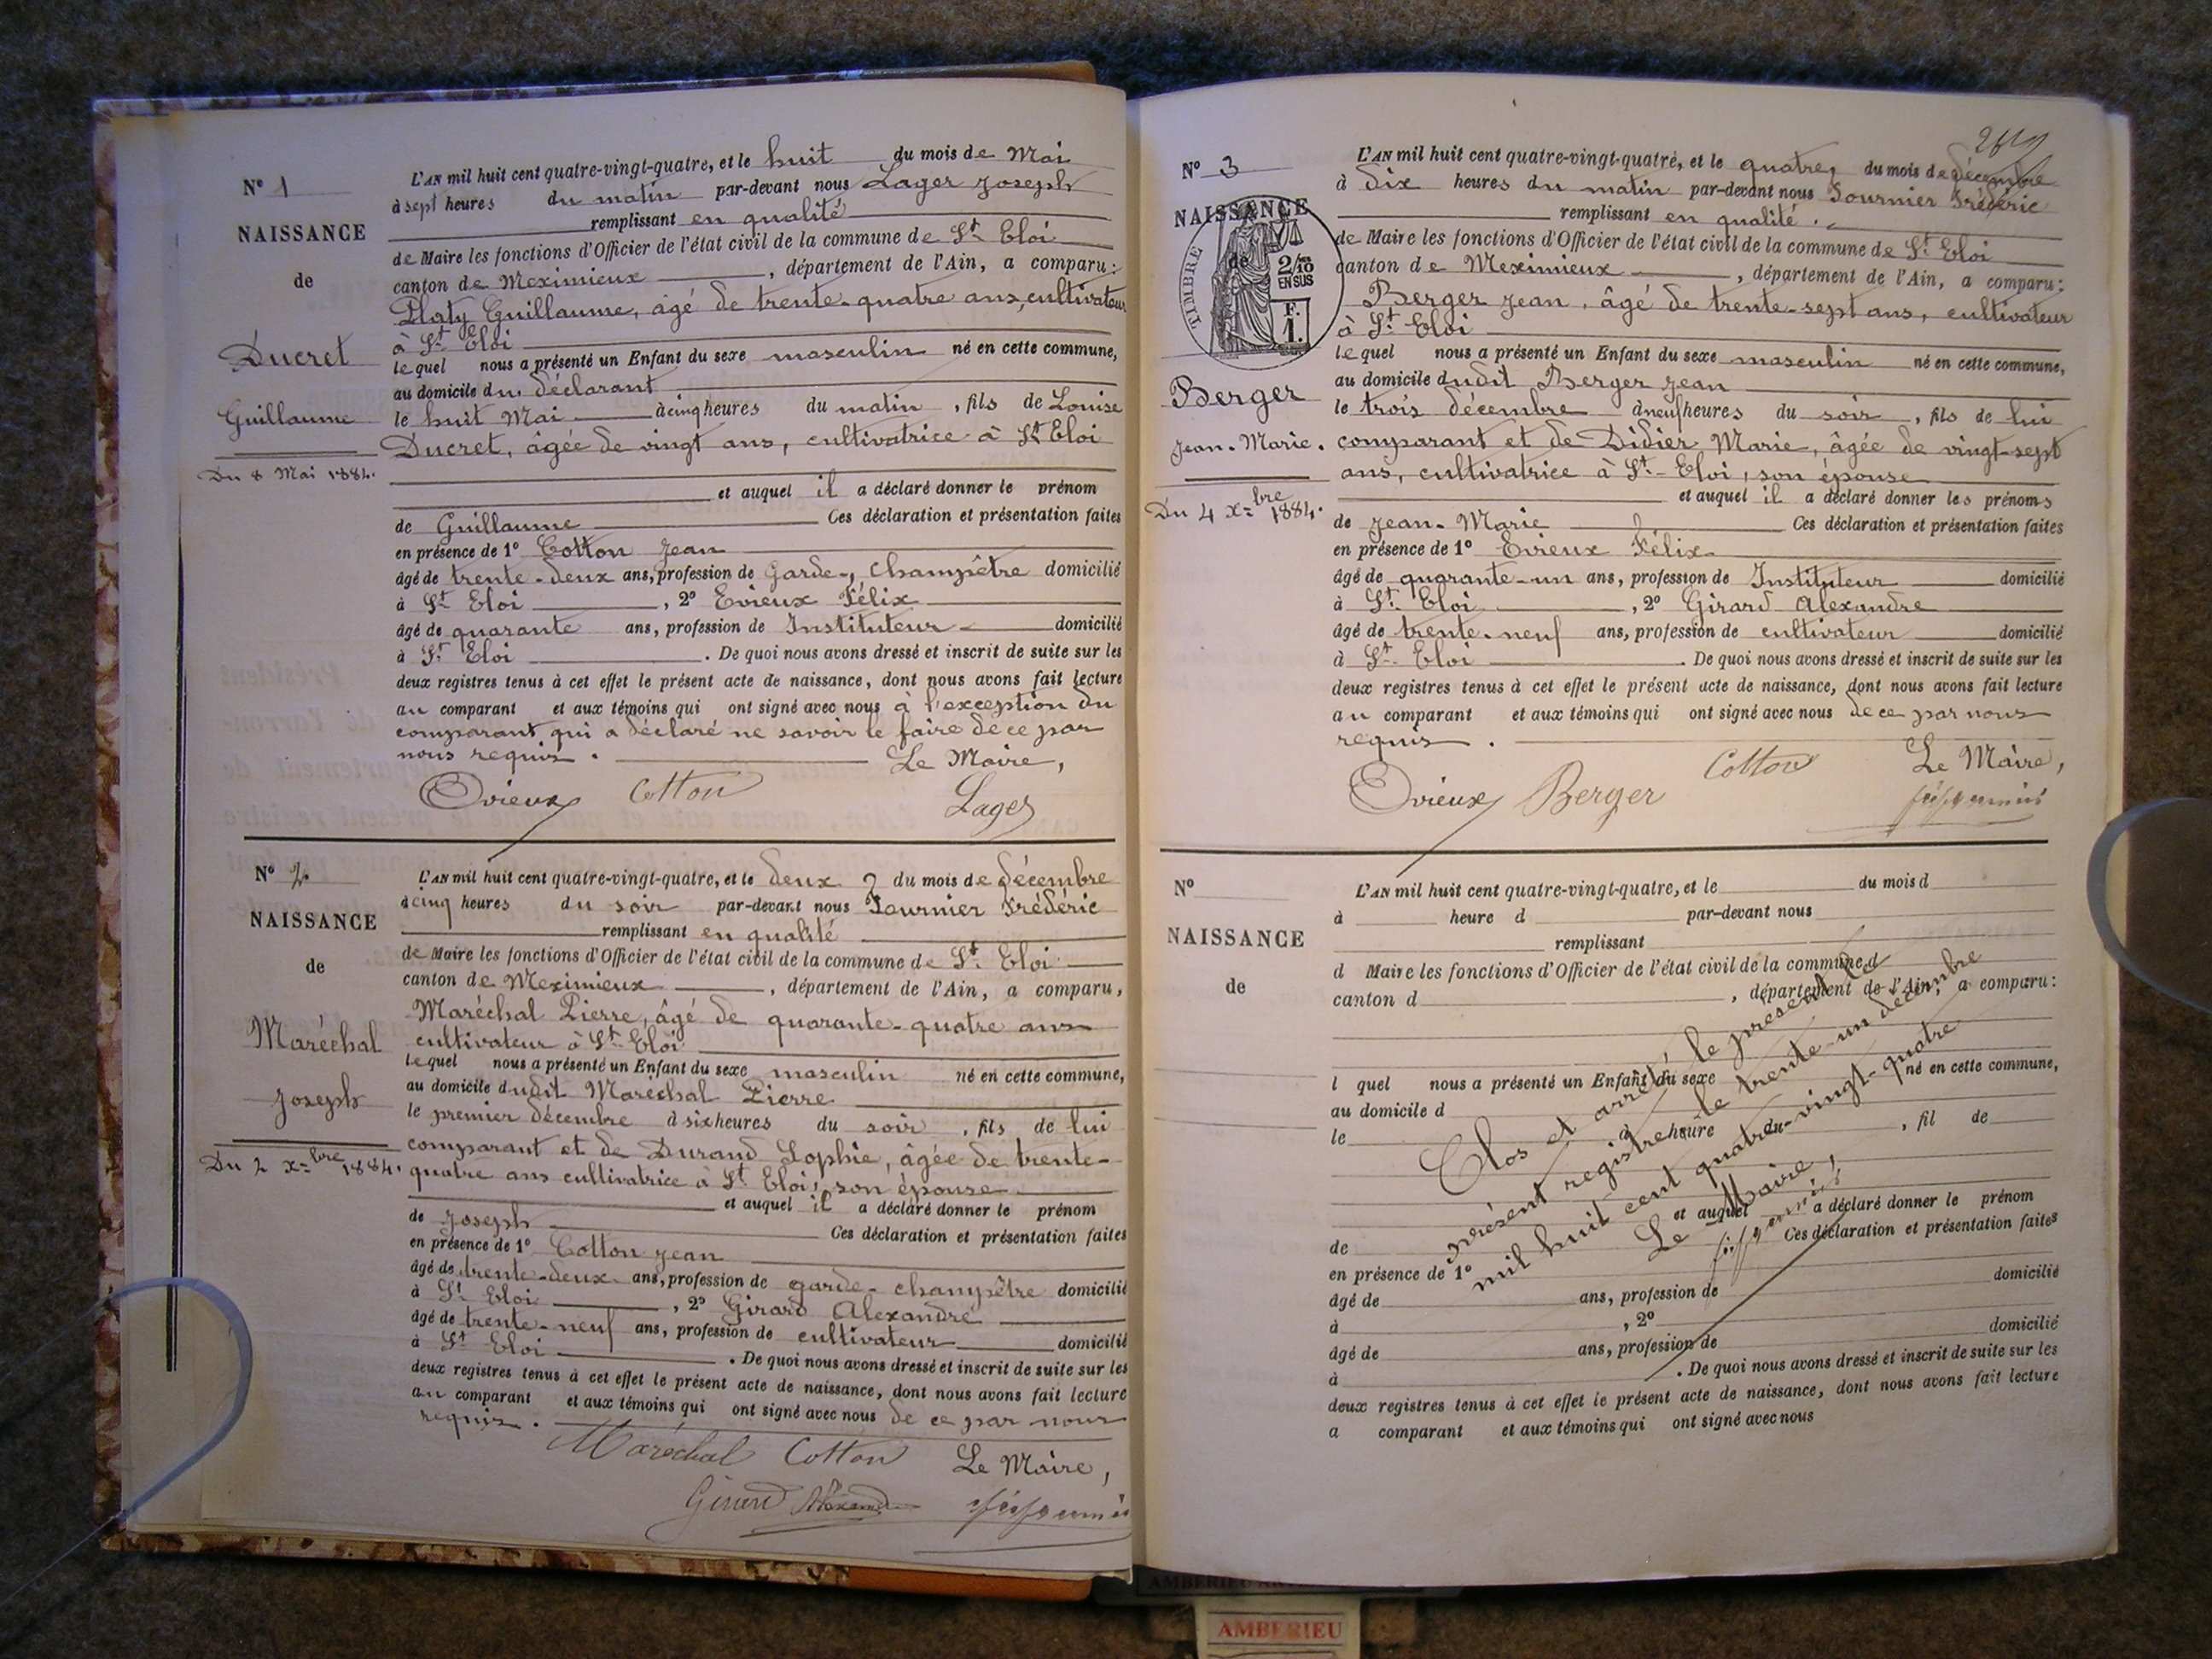 N° 1
NAISSANCE
de
Ducret
Guillaume
Du 8 Mai 1884.
L'AN mil huit cent quatre-vingt-quatre, et le huit du mois de Mai
à sept heures du matin par-devant nous Lager Joseph
remplissant en qualité
de Maire les fonctions d'Officier de l'état civil de la commune de St Eloi
canton de Meximieux, département de l'Ain, a comparu:
Platy Guillaume, âgé de trente-quatre ans, cultivateur
à St Eloi
lequel nous a présenté un Enfant du sexe masculin né en cette commune,
au domicile du déclarant
le huit Mai à cinq heures du matin, fils de Louise
Ducret, âgée de vingt ans, cultivatrice à St Eloi
et auquel il a déclaré donner le prénom
de Guillaume Ces déclaration et présentation faites
en présence de 1° Cotton Jean
âgé de trente-deux ans, profession de Garde-Champêtre domicilié
à St Eloi, 2° Evieux Félix
âgé de quarante ans, profession de Instituteur domicilié
à St Eloi. De quoi nous avons dressé et inscrit de suite sur les
deux registres tenus à cet effet le présent acte de naissance, dont nous avons fait lecture
au comparant et aux témoins qui ont signé avec nous à l'exception du
comparant qui a déclaré ne savoir le faire de ce par
nous requis. Le Maire,
Evieux Cotton Lager
N° 2
NAISSANCE
de
Maréchal
Joseph
Du 2 Xbre 1884.
L'AN mil huit cent quatre-vingt-quatre, et le deux du mois de décembre
à cinq heures du soir par-devant nous Fournier Frédéric
remplissant en qualité
de Maire les fonctions d'Officier de l'état civil de la commune de St Eloi
canton de Meximieux, département de l'Ain, a comparu,
Maréchal Pierre, âgé de quarante-quatre ans
cultivateur à St Eloi
lequel nous a présenté un Enfant du sexe masculin né en cette commune,
au domicile dudit Maréchal Pierre
le premier décembre à six heures du soir, fils de lui
comparant et de Durand Sophie, âgée de trente-
quatre ans cultivatrice à St Eloi, son épouse
et auquel il a déclaré donner le prénom
de Joseph Ces déclaration et présentation faites
en présence de 1° Cotton Jean
âgé de trente-deux ans, profession de garde-champêtre domicilié
à St Eloi, 2° Girard Alexandre
âgé de trente-neuf ans, profession de cultivateur domicilié
à St Eloi. De quoi nous avons dressé et inscrit de suite sur les
deux registres tenus à cet effet le présent acte de naissance, dont nous avons fait lecture
au comparant et aux témoins qui ont signé avec nous de ce par nous
requis.
Maréchal Cotton Le Maire,
Girard Alexandre
269
N° 3
NAISSANCE
de
TIMBRE
2/10 EN SUS
F. 1.
Berger
Jean-Marie.
Du 4 Xbre 1884.
L'AN mil huit cent quatre-vingt-quatre, et le quatre, du mois de décembre
à dix heures du matin par-devant nous Fournier Frédéric
remplissant en qualité.
de Maire les fonctions d'Officier de l'état civil de la commune de St Eloi
canton de Meximieux, département de l'Ain, a comparu:
Berger Jean, âgé de trente-sept ans, cultivateur
à St Eloi
lequel nous a présenté un Enfant du sexe masculin né en cette commune,
au domicile dudit Berger Jean
le trois décembre à neuf heures du soir, fils de lui
comparant et de Didier Marie, âgée de vingt-sept
ans, cultivatrice à St-Eloi, son épouse
et auquel il a déclaré donner les prénoms
de Jean-Marie Ces déclaration et présentation faites
en présence de 1° Evieux Félix
âgé de quarante-un ans, profession de Instituteur domicilié
à St Eloi, 2° Girard Alexandre
âgé de trente-neuf ans, profession de cultivateur domicilié
à St Eloi. De quoi nous avons dressé et inscrit de suite sur les
deux registres tenus à cet effet le présent acte de naissance, dont nous avons fait lecture
au comparant et aux témoins qui ont signé avec nous de ce par nous
requis.
Evieux Berger Cotton Le Maire,
N°
NAISSANCE
de
L'AN mil huit cent quatre-vingt-quatre, et le du mois d
à heure d par-devant nous
remplissant
d Maire les fonctions d'Officier de l'état civil de la commune d
canton d, département de l'Ain, a comparu:
l quel nous a présenté un Enfant du sexe né en cette commune,
au domicile d
le à heure du, fil de
et auquel a déclaré donner le prénom
de Ces déclaration et présentation faites
en présence de 1°
âgé de ans, profession de domicilié
à, 2°
âgé de ans, profession de domicilié
à. De quoi nous avons dressé et inscrit de suite sur les
deux registres tenus à cet effet le présent acte de naissance, dont nous avons fait lecture
a comparant et aux témoins qui ont signé avec nous
Clos et arrêté le présent
présent registre le trente-un décembre
mil huit cent quatre-vingt-quatre
Le Maire,
AMBERIEU